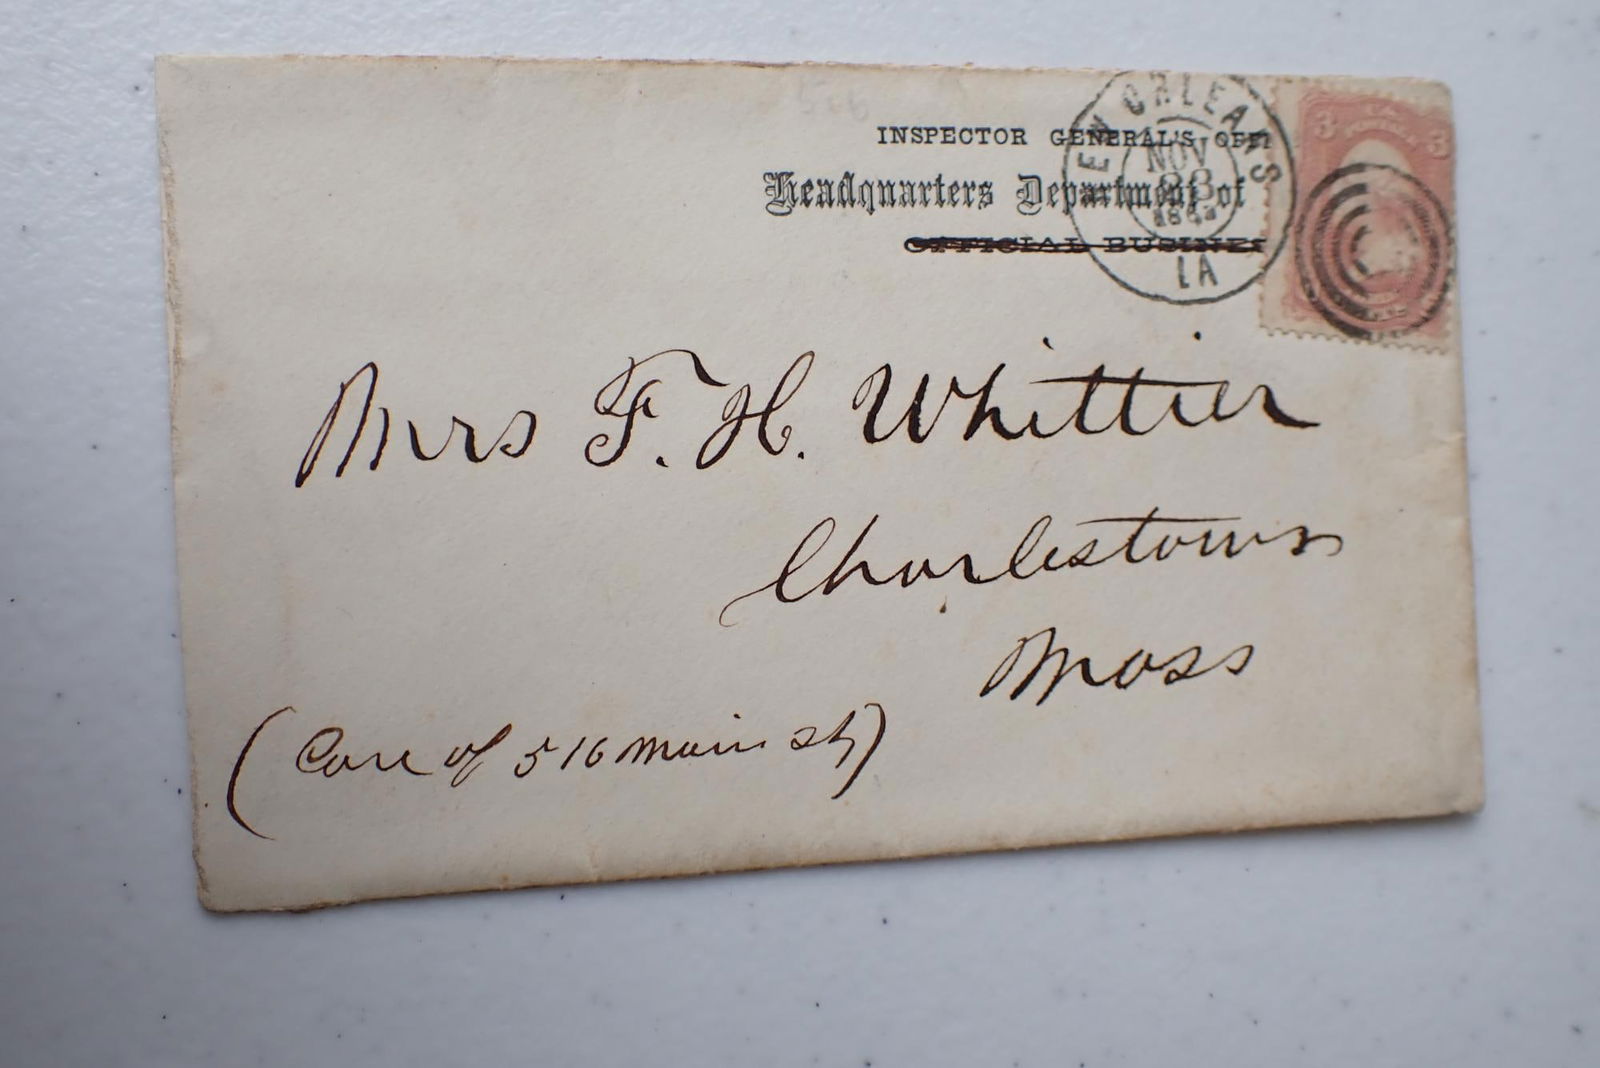 INSPECTOR GENERAL'S OFFI
Headquarters Department of
OFFICIAL BUSINE
EW ORLEANS
NOV
23
LA
3 3
Mrs F. H. Whittier
Charlestown
Mass
(Care of 516 Main St)